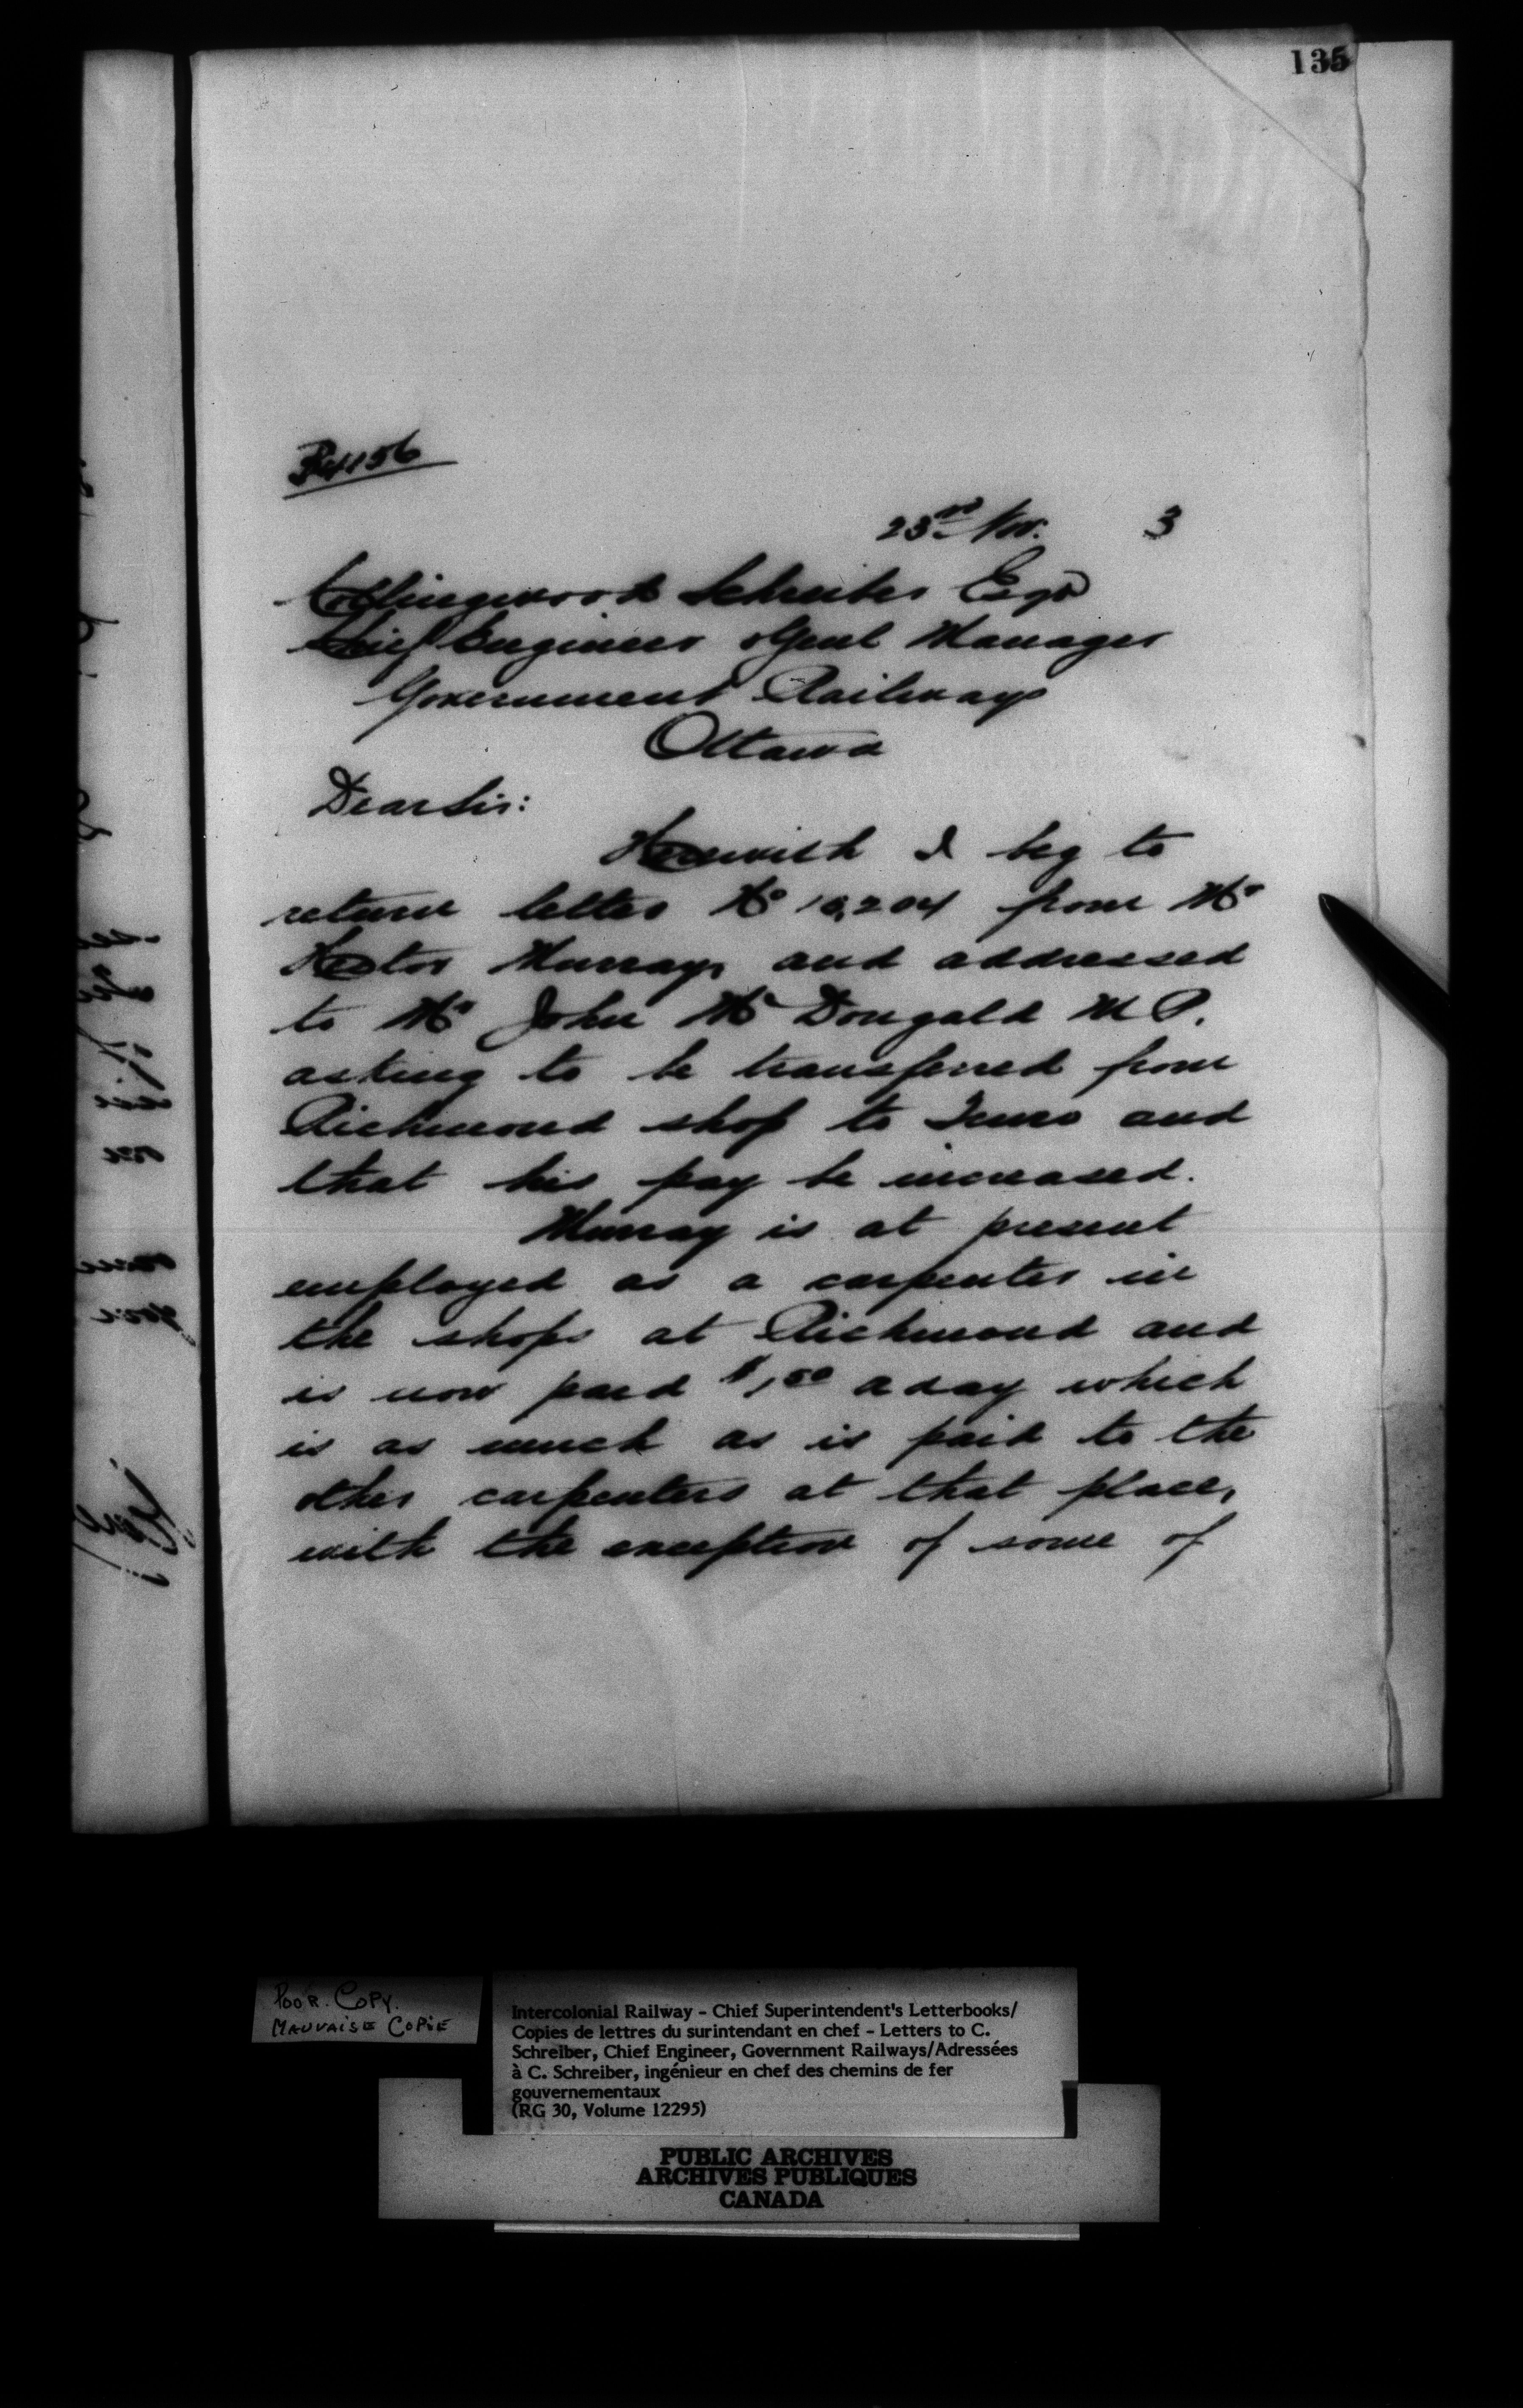 135
34156
23rd Nov. 3
Collingwood Schreiber Esqr
Chief Engineer & Genl Manager
Government Railways
Ottawa
Dear Sir:
Herewith I beg to
return letter No 10,204 from Mr
Hector Murray, and addressed
to Mr John McDougald M.P.
asking to be transferred from
Richmond shop to Truro and
that his pay be increased.
Murray is at present
employed as a carpenter in
the shops at Richmond and
is now paid $1.50 a day which
is as much as is paid to the
other carpenters at that place,
with the exception of some of
POOR. COPY.
MAUVAISE COPIE
Intercolonial Railway - Chief Superintendent's Letterbooks/
Copies de lettres du surintendant en chef - Letters to C.
Schreiber, Chief Engineer, Government Railways/Adressées
à C. Schreiber, ingénieur en chef des chemins de fer
gouvernementaux
(RG 30, Volume 12295)
PUBLIC ARCHIVES
ARCHIVES PUBLIQUES
CANADA